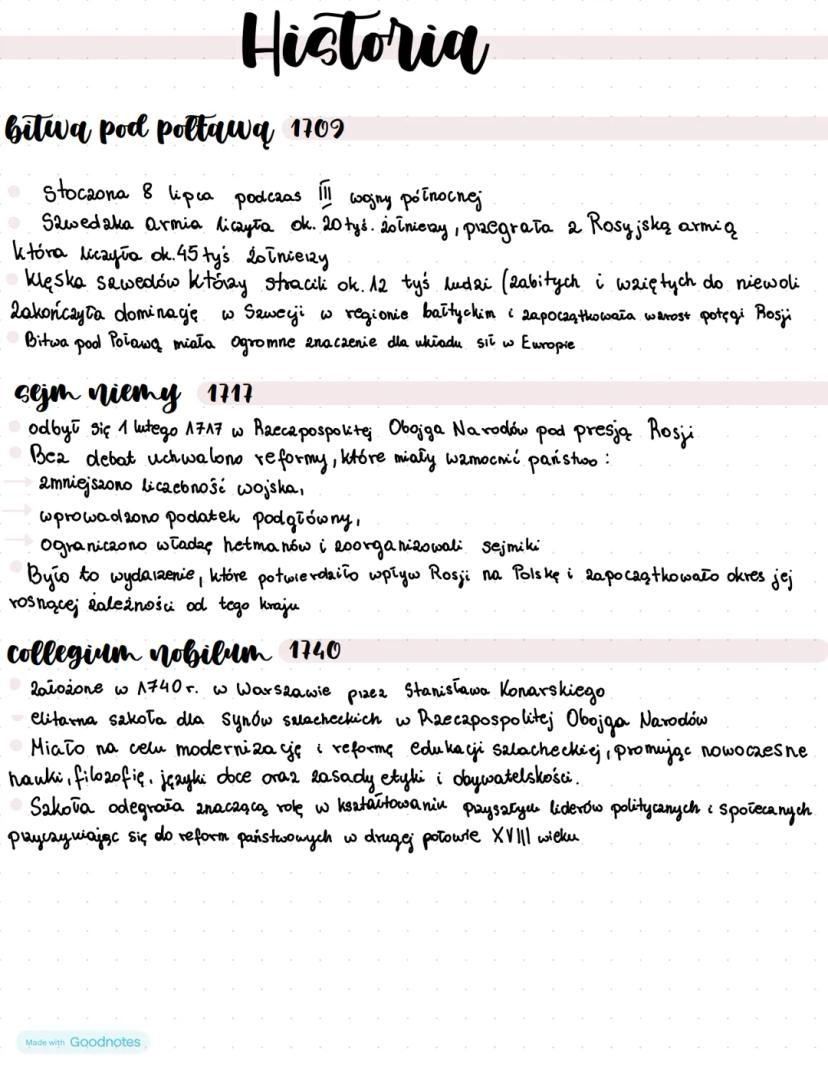 Historia
bitwa pod połtawą 1709
Stoczona 8 lipca podczas III wojny północnej
Szwedzka armia liczyła ok. 20 tyś. żołnierzy, przegrała z Rosyjską armią
która liczyła ok. 45 tyś żołnierzy
Klęska szwedów którzy stracili ok. 12 tyś ludzi (zabitych i wziętych do niewoli
zakończyła dominację w Szwecji w regionie bałtyckim i zapoczątkowała wzrost potęgi Rosji
Bitwa pod Poławą miała ogromne znaczenie dla układu sił w Europie
sejm niemy 1717
odbył się 1 lutego 1717 w Rzeczpospolitej Obojga Narodów pod presją Rosji
Bez debat uchwalono reformy, które miały wzmocnić państwo:
zmniejszono liczebność wojska,
wprowadzono podatek podgłówny,
ograniczono władzę hetmanów i zoorganizowali sejmiki
Było to wydarzenie, które potwierdziło wpływ Rosji na Polskę i zapoczątkowało okres jej
rosnącej zależności od tego kraju
collegium nobilum 1740
założone w 1740 r. w Warszawie przez Stanisława Konarskiego
elitarna szkoła dla synów szlacheckich w Rzeczpospolitej Obojga Narodów
Miało na celu modernizację i reformę edukacji szlacheckiej, promując nowoczesne
nauki, filozofię, języki obce oraz zasady etyki i obywatelskości.
Szkoła odegrała znaczącą rolę w kształtowaniu przyszłych liderów politycznych i społecznych
przyczyniając się do reform państwowych w drugej połowie XVIII wieku
Made with Goodnotes